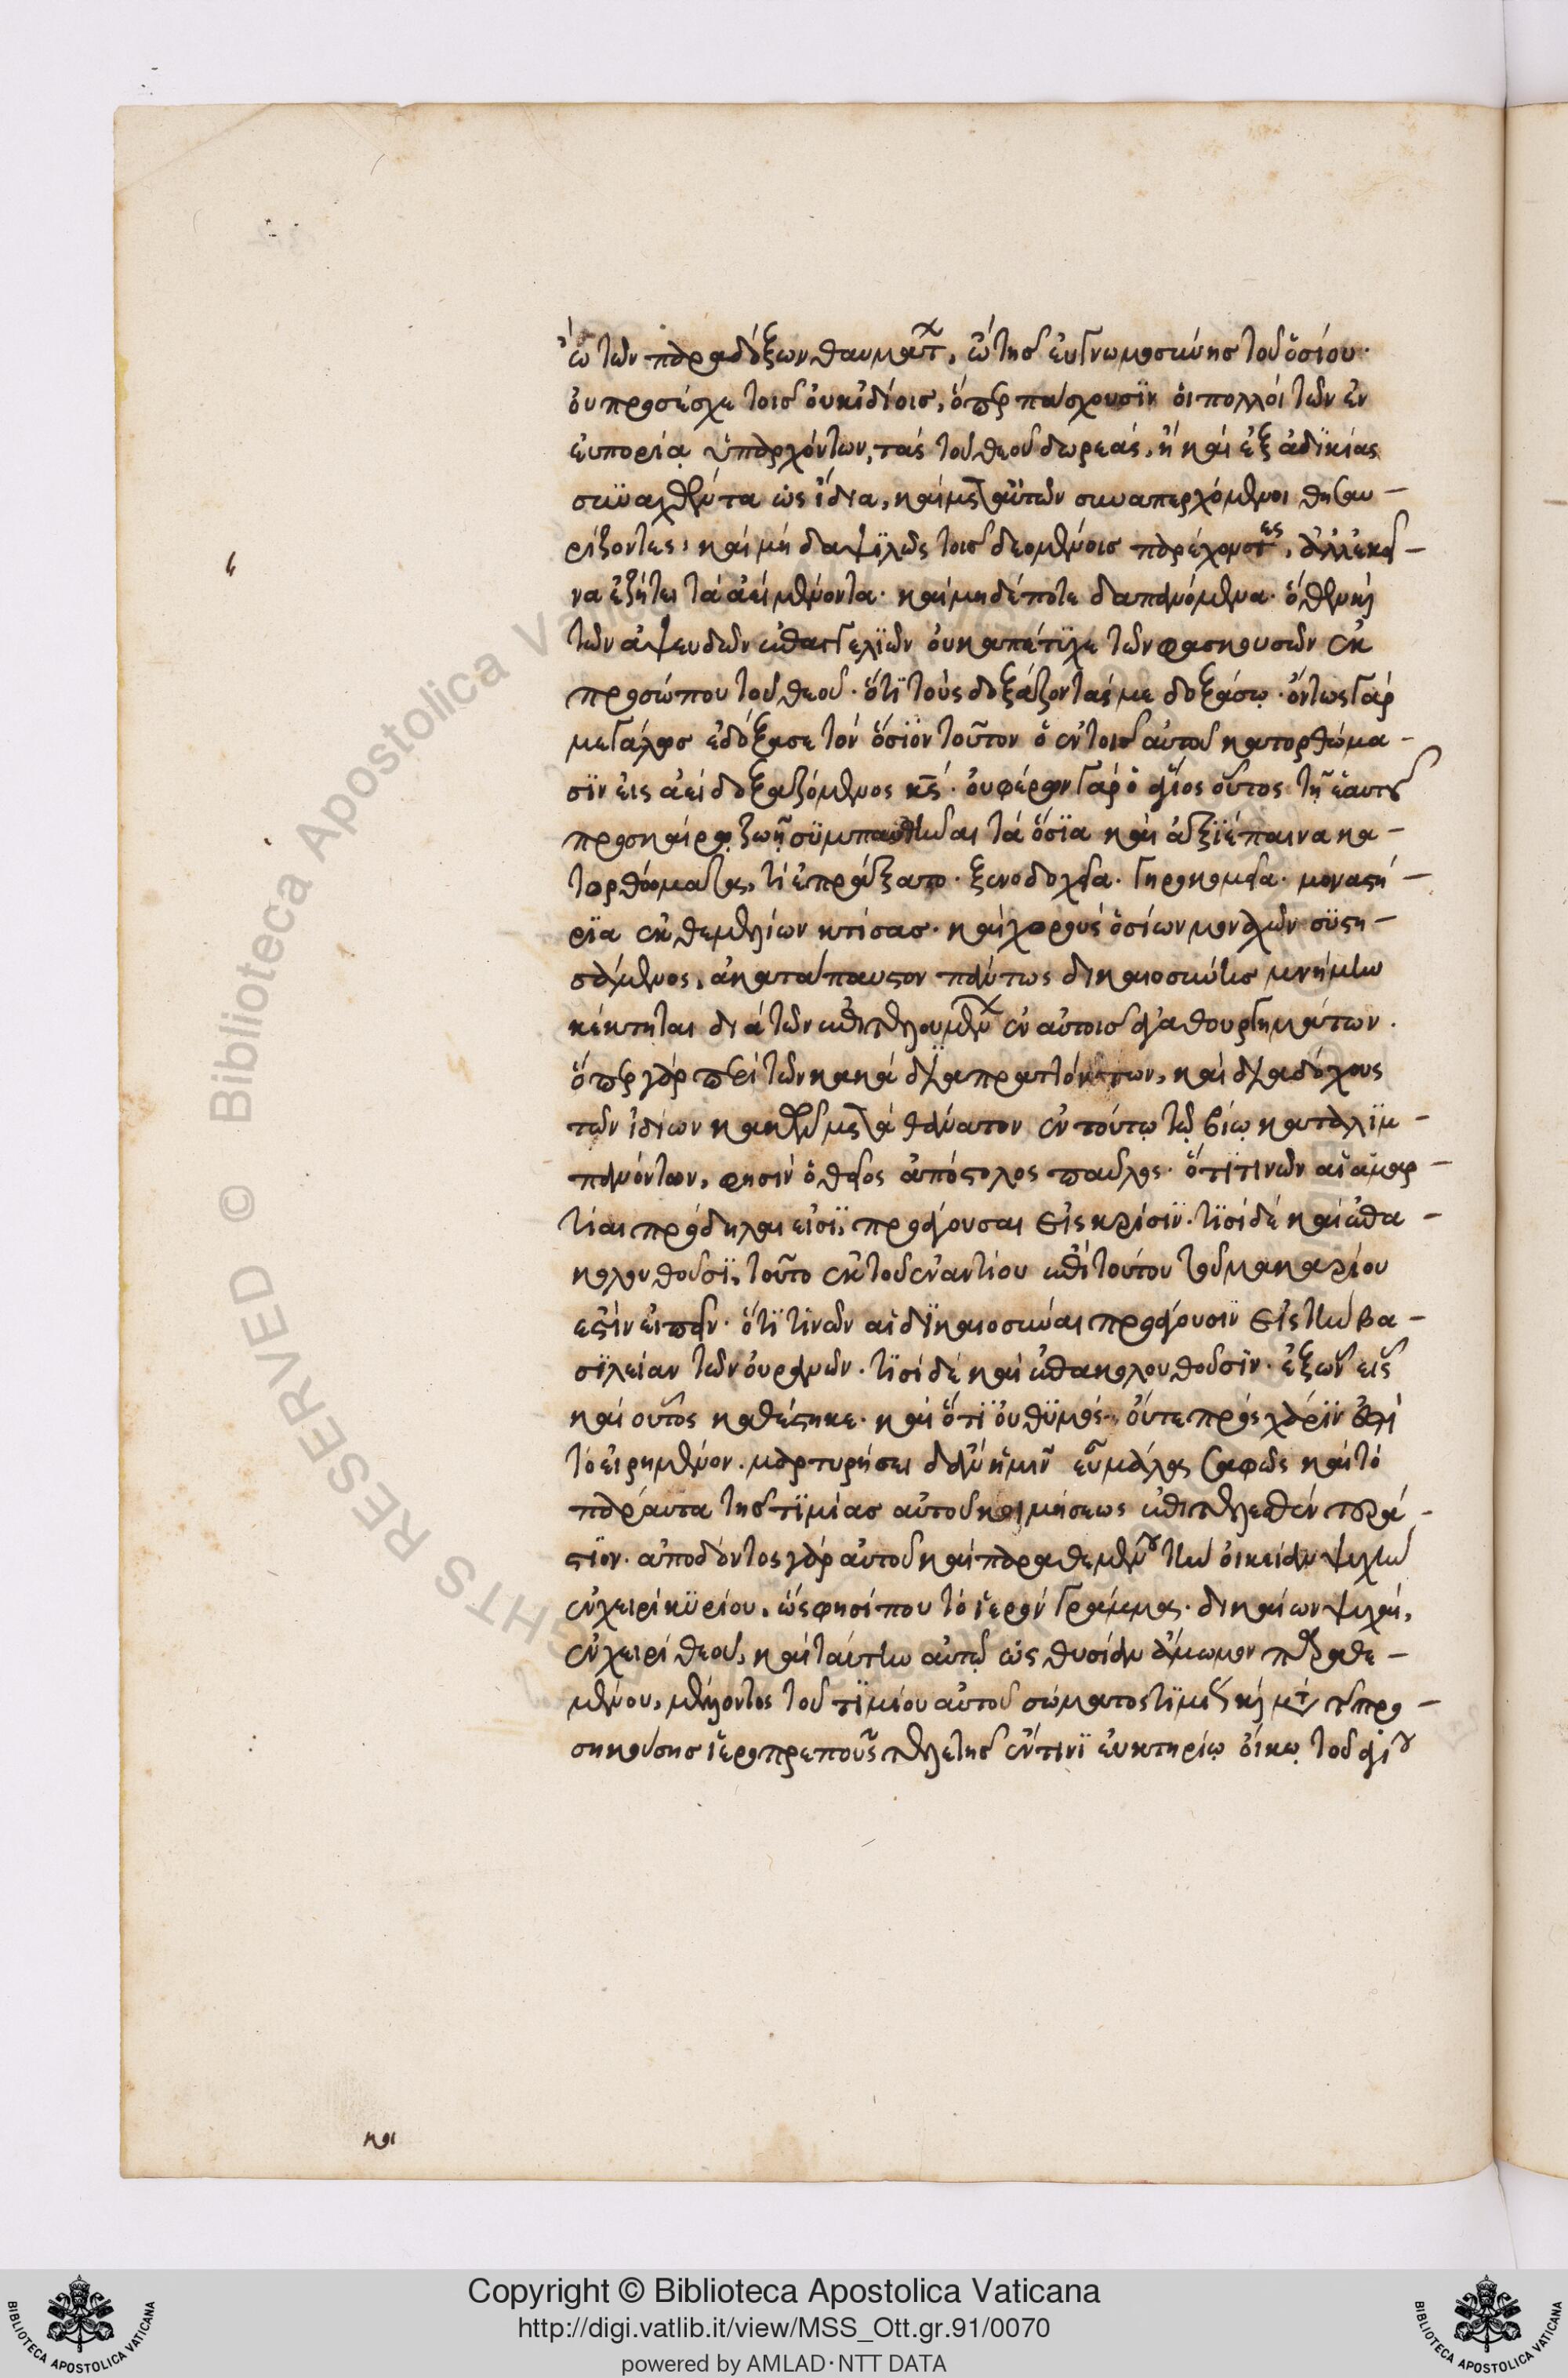 ὢ τῶν παραδόξων θαυμάτων, ὢ τῆς εὐγνωμοσύνης τοῦ ὁσίου·
οὐ προσέσχε τοῖς οὐκ ἰδίοις, ὅπερ πάσχουσϊν οἱ πολλοὶ τῶν ἐν
εὐπορίᾳ ὑπαρχόντων, τὰς τοῦ θεοῦ δωρεὰς, ἢ καὶ ἐξ ἀδϊκίας
συναχθέντα ὡς ἴδια, καὶ μετ' αὐτῶν συναπερχόμενοι θησαυ-
ρίζοντες· καὶ μὴ δαψϊλῶς τοῖς δεομένοις παρέχοντες, ἀλλ' ἐκεῖ-
να ἐζήτει τὰ ἀεὶ μένοντα· καὶ μηδέποτε δαπανόμενα· ὅθεν καὶ
τῶν ἀψευδῶν ἐπαγγελϊῶν οὐκ ἀπέτϋχε τῶν φασκουσῶν ἐκ
προσώπου τοῦ θεοῦ· ὅτϊ τοὺς δοξάζοντάς με δοξάσω· ὄντως γὰρ
μεγάλως ἐδόξασε τὸν ὅσϊον τοῦτον ὁ ἐν τοῖς αὐτοῦ κατορθώμα-
σϊν εἰς ἀεὶ δοξαζόμενος κς· οὐ φέρων γὰρ ὁ ἅγιος οὗτος τῇ ἑαυτοῦ
προσκαίρῳ ζωῇ σϋμπαυθῆναι τὰ ὅσϊα καὶ ἀξϊέπαινα κα-
τορθώματα, τί ἐπράξατο· ξενοδοχεῖα· γηροκομεῖα· μοναστή-
ρϊα ἐκ θεμελίων κτίσας· καὶ χοροὺς ὁσίων μοναχῶν σϋστη-
σάμενος, ἀκατάπαυστον πάντως δικαιοσύνης μνήμην
κέκτηται διὰ τῶν ἐπιτελουμένων ἐν αὐτοῖς ἀγαθουργημάτων.
ὅπερ γὰρ περὶ τῶν κακὰ διαπραττόντων, καὶ διαδόχους
τῶν ἰδίων κακῶν μετὰ θάνατον ἐν τούτῳ τῷ βίῳ καταλϊμ-
πανόντων, φησὶν ὁ θεῖος ἀπόστολος παῦλος· ὅτϊ τινῶν αἱ ἁμαρ-
τίαι πρόδηλαι εἰσϊ, προάγουσαι εἰς κρίσϊν· τϊσὶ δὲ καὶ ἐπα-
κολουθοῦσϊ, τοῦτο ἐκ τοῦ ἐναντίου ἐπὶ τούτου τοῦ μακαρίου
ἐστὶν εἰπεῖν· ὅτϊ τϊνῶν αἱ δϊκαιοσύναι προάγουσϊν εἰς τὴν βα-
σϊλείαν τῶν οὐρανῶν· τϊσὶ δὲ καὶ ἐπακολουθοῦσϊν· ἐξ ὧν εἷς
καὶ οὗτος καθέστηκε· καὶ ὅτϊ οὐ θϋμὸς οὔτε πρὸς χάρϊν ἐστὶ
τὸ εἰρημένον· μαρτυρήσει δ' ἂν ἡμῖν εὖ μάλα σαφῶς καὶ τὸ
πάραυτα τῆς τϊμίας αὐτοῦ κοιμήσεως ἐπιτελεσθὲν τερά-
στϊον· ἀποδόντος γὰρ αὐτοῦ καὶ παραθεμένου τὴν οἰκείαν ψυχὴν
ἐν χειρὶ κϋρίου, ὥς φησί που τὸ ἱερὸν γράμμα· δικαίων ψυχαὶ,
ἐν χειρὶ θεοῦ, καὶ ταύτην αὐτῷ ὡς θυσίαν ἄμωμον παραθε-
μένου, μέλλοντος τοῦ τϊμίου αὐτοῦ σώματος τϊμίως καὶ μετὰ τῆς προ-
σηκούσης ἱεροπρεποῦς τελετῆς ἔν τινϊ εὐκτηρίῳ οἴκῳ τοῦ ἁγίου
και
Copyright © Biblioteca Apostolica Vaticana
http://digi.vatlib.it/view/MSS_Ott.gr.91/0070
powered by AMLAD·NTT DATA